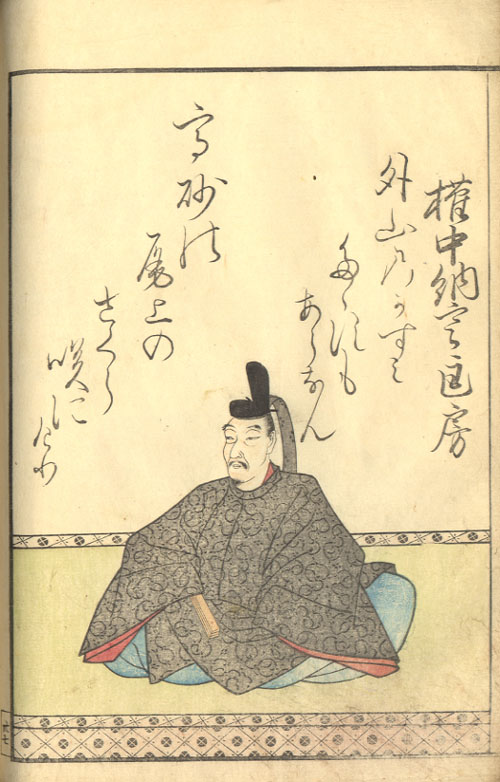 権中納言匡房
高砂の
尾上の
さくら
咲にけり
外山のかすみ
たゝすも
あらなん